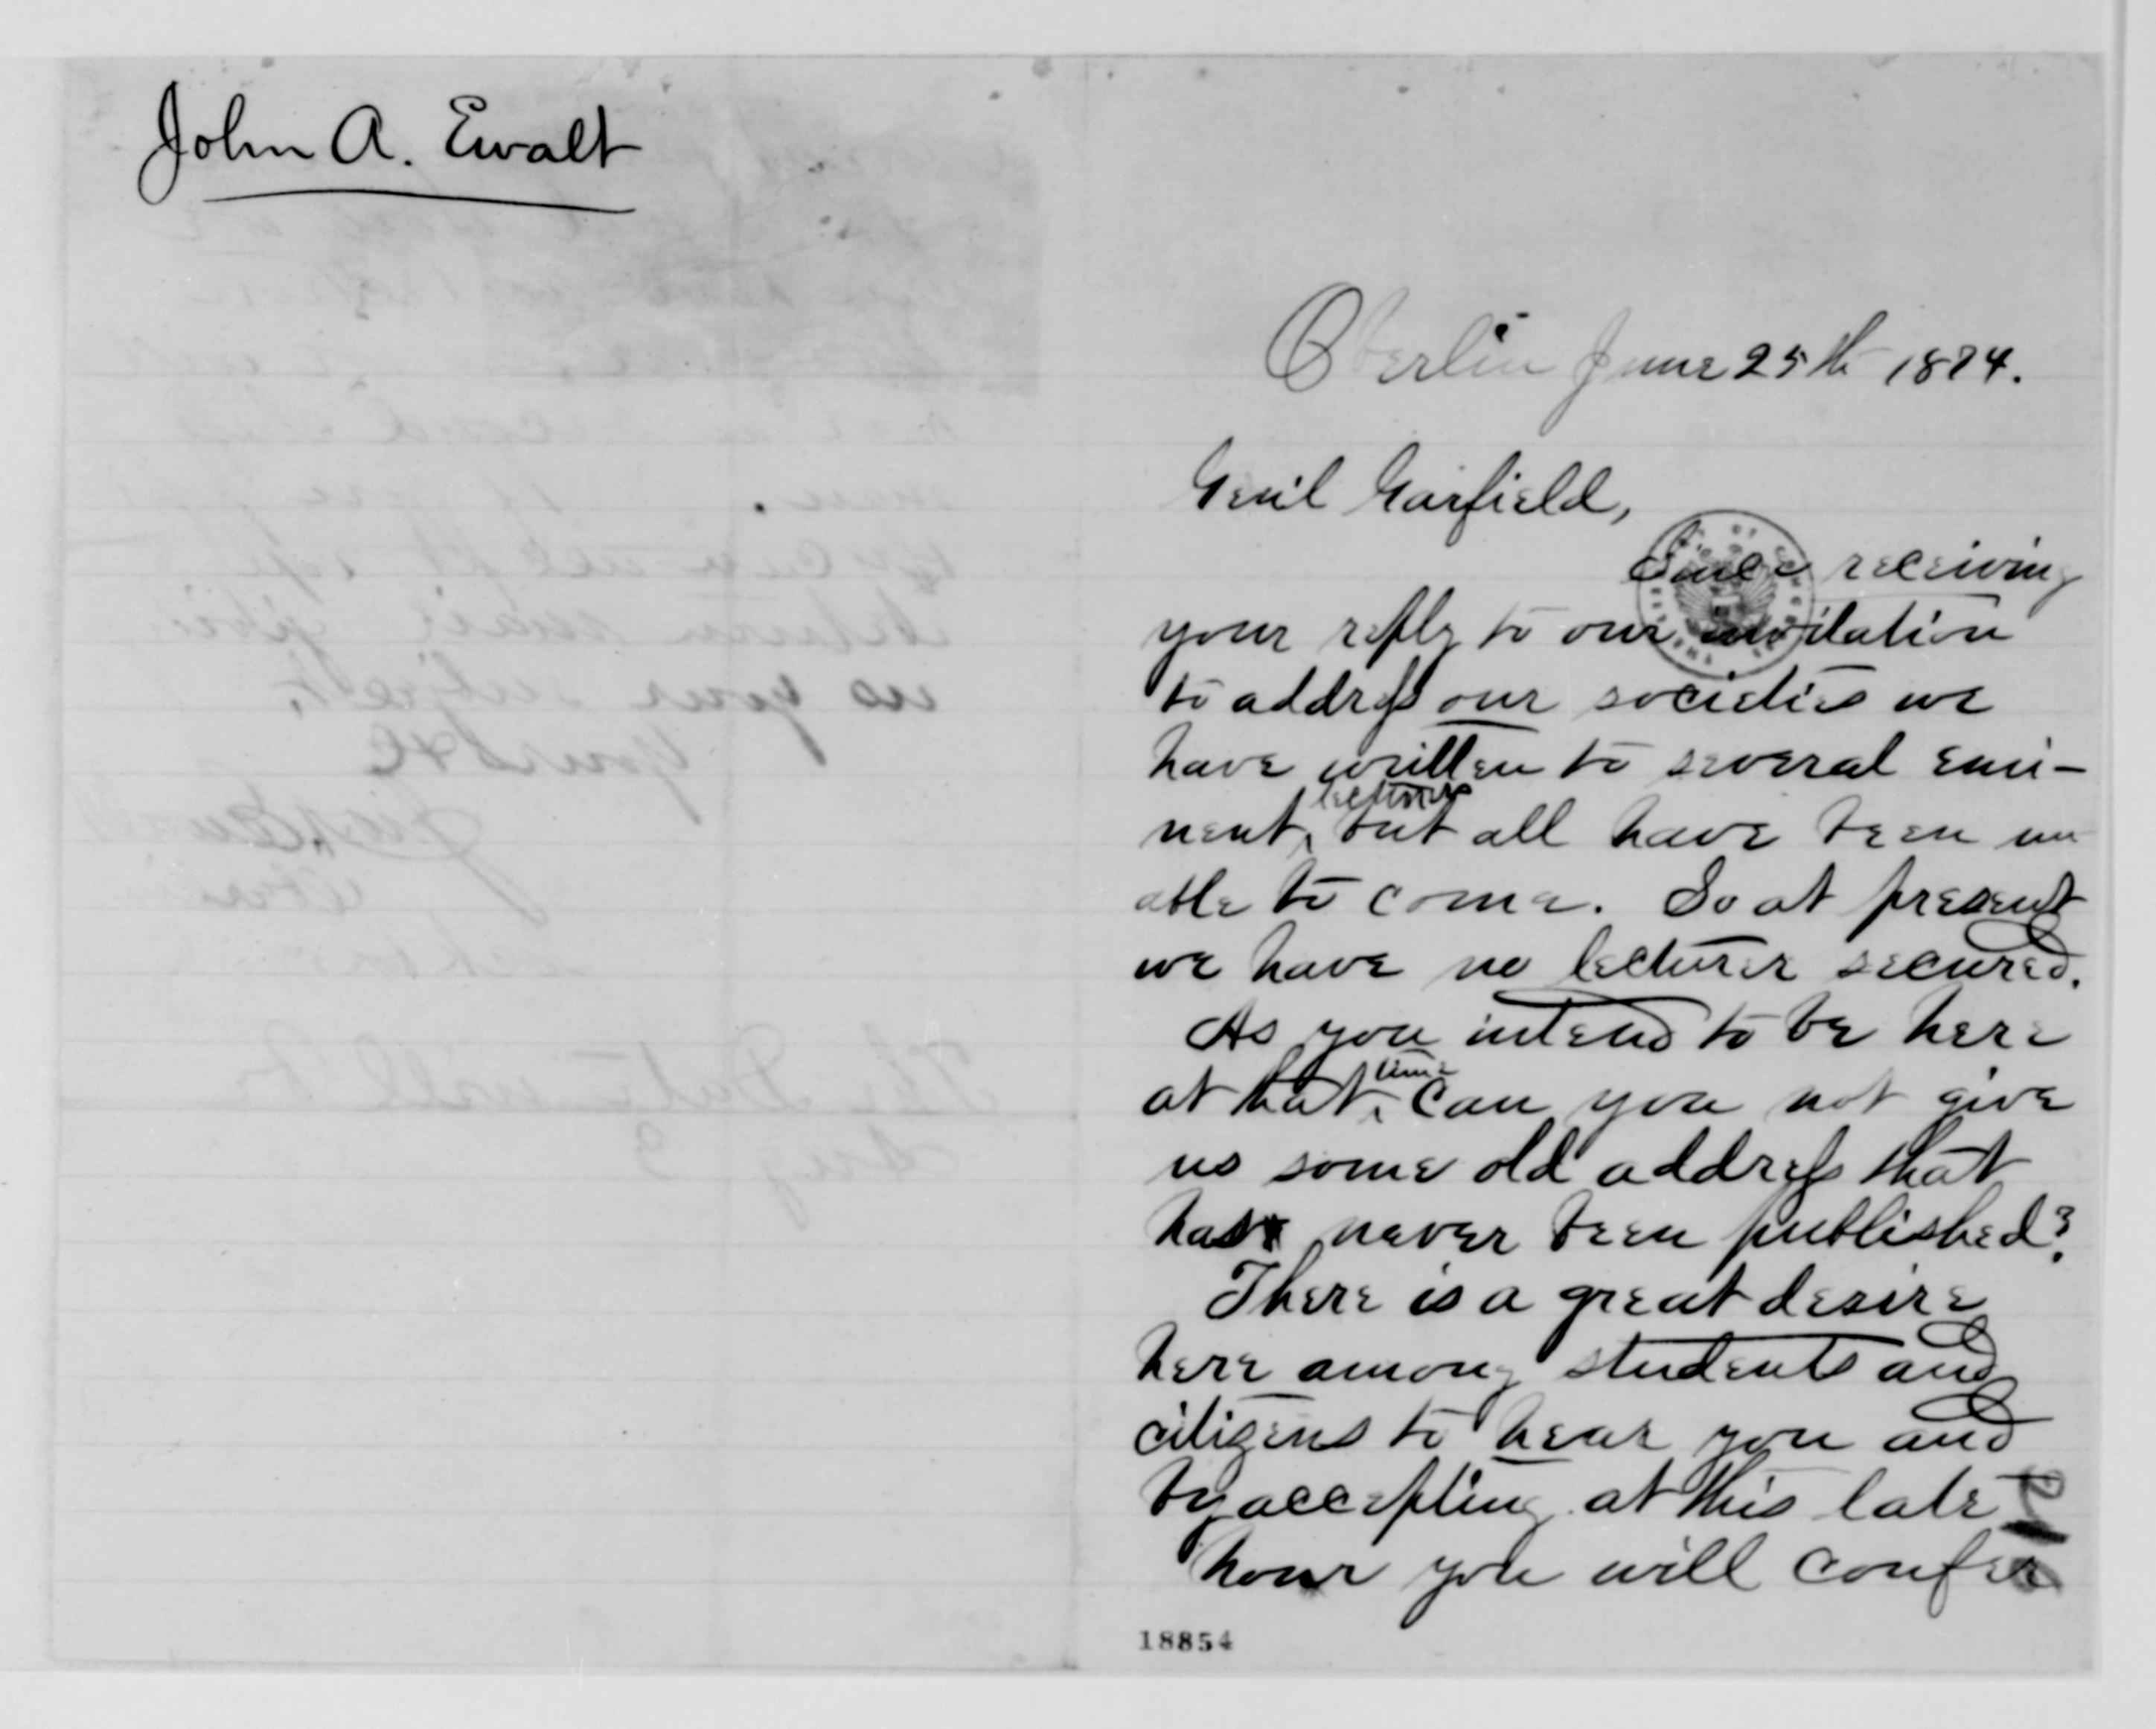 John A. Ewalt
Oberlin June 25th 1874.
Genl Garfield,
Since receiving
your reply to our invitation
to address our societies we
have written to several emi-
nent lecturers but all have been un
able to come. So at present
we have no lecturer secured.
As you intend to be here
at that time can you not give
us some old address that
has never been published?
There is a great desire
here among students and
citizens to hear you and
by accepting at this late
hour you will confer
18854